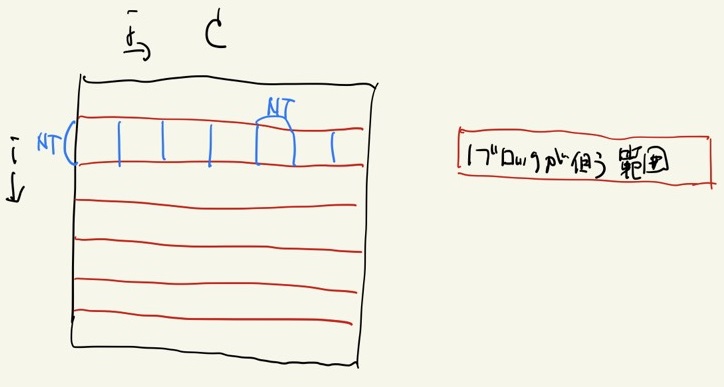 j C
NT
NT
i
1ブロックが使う範囲